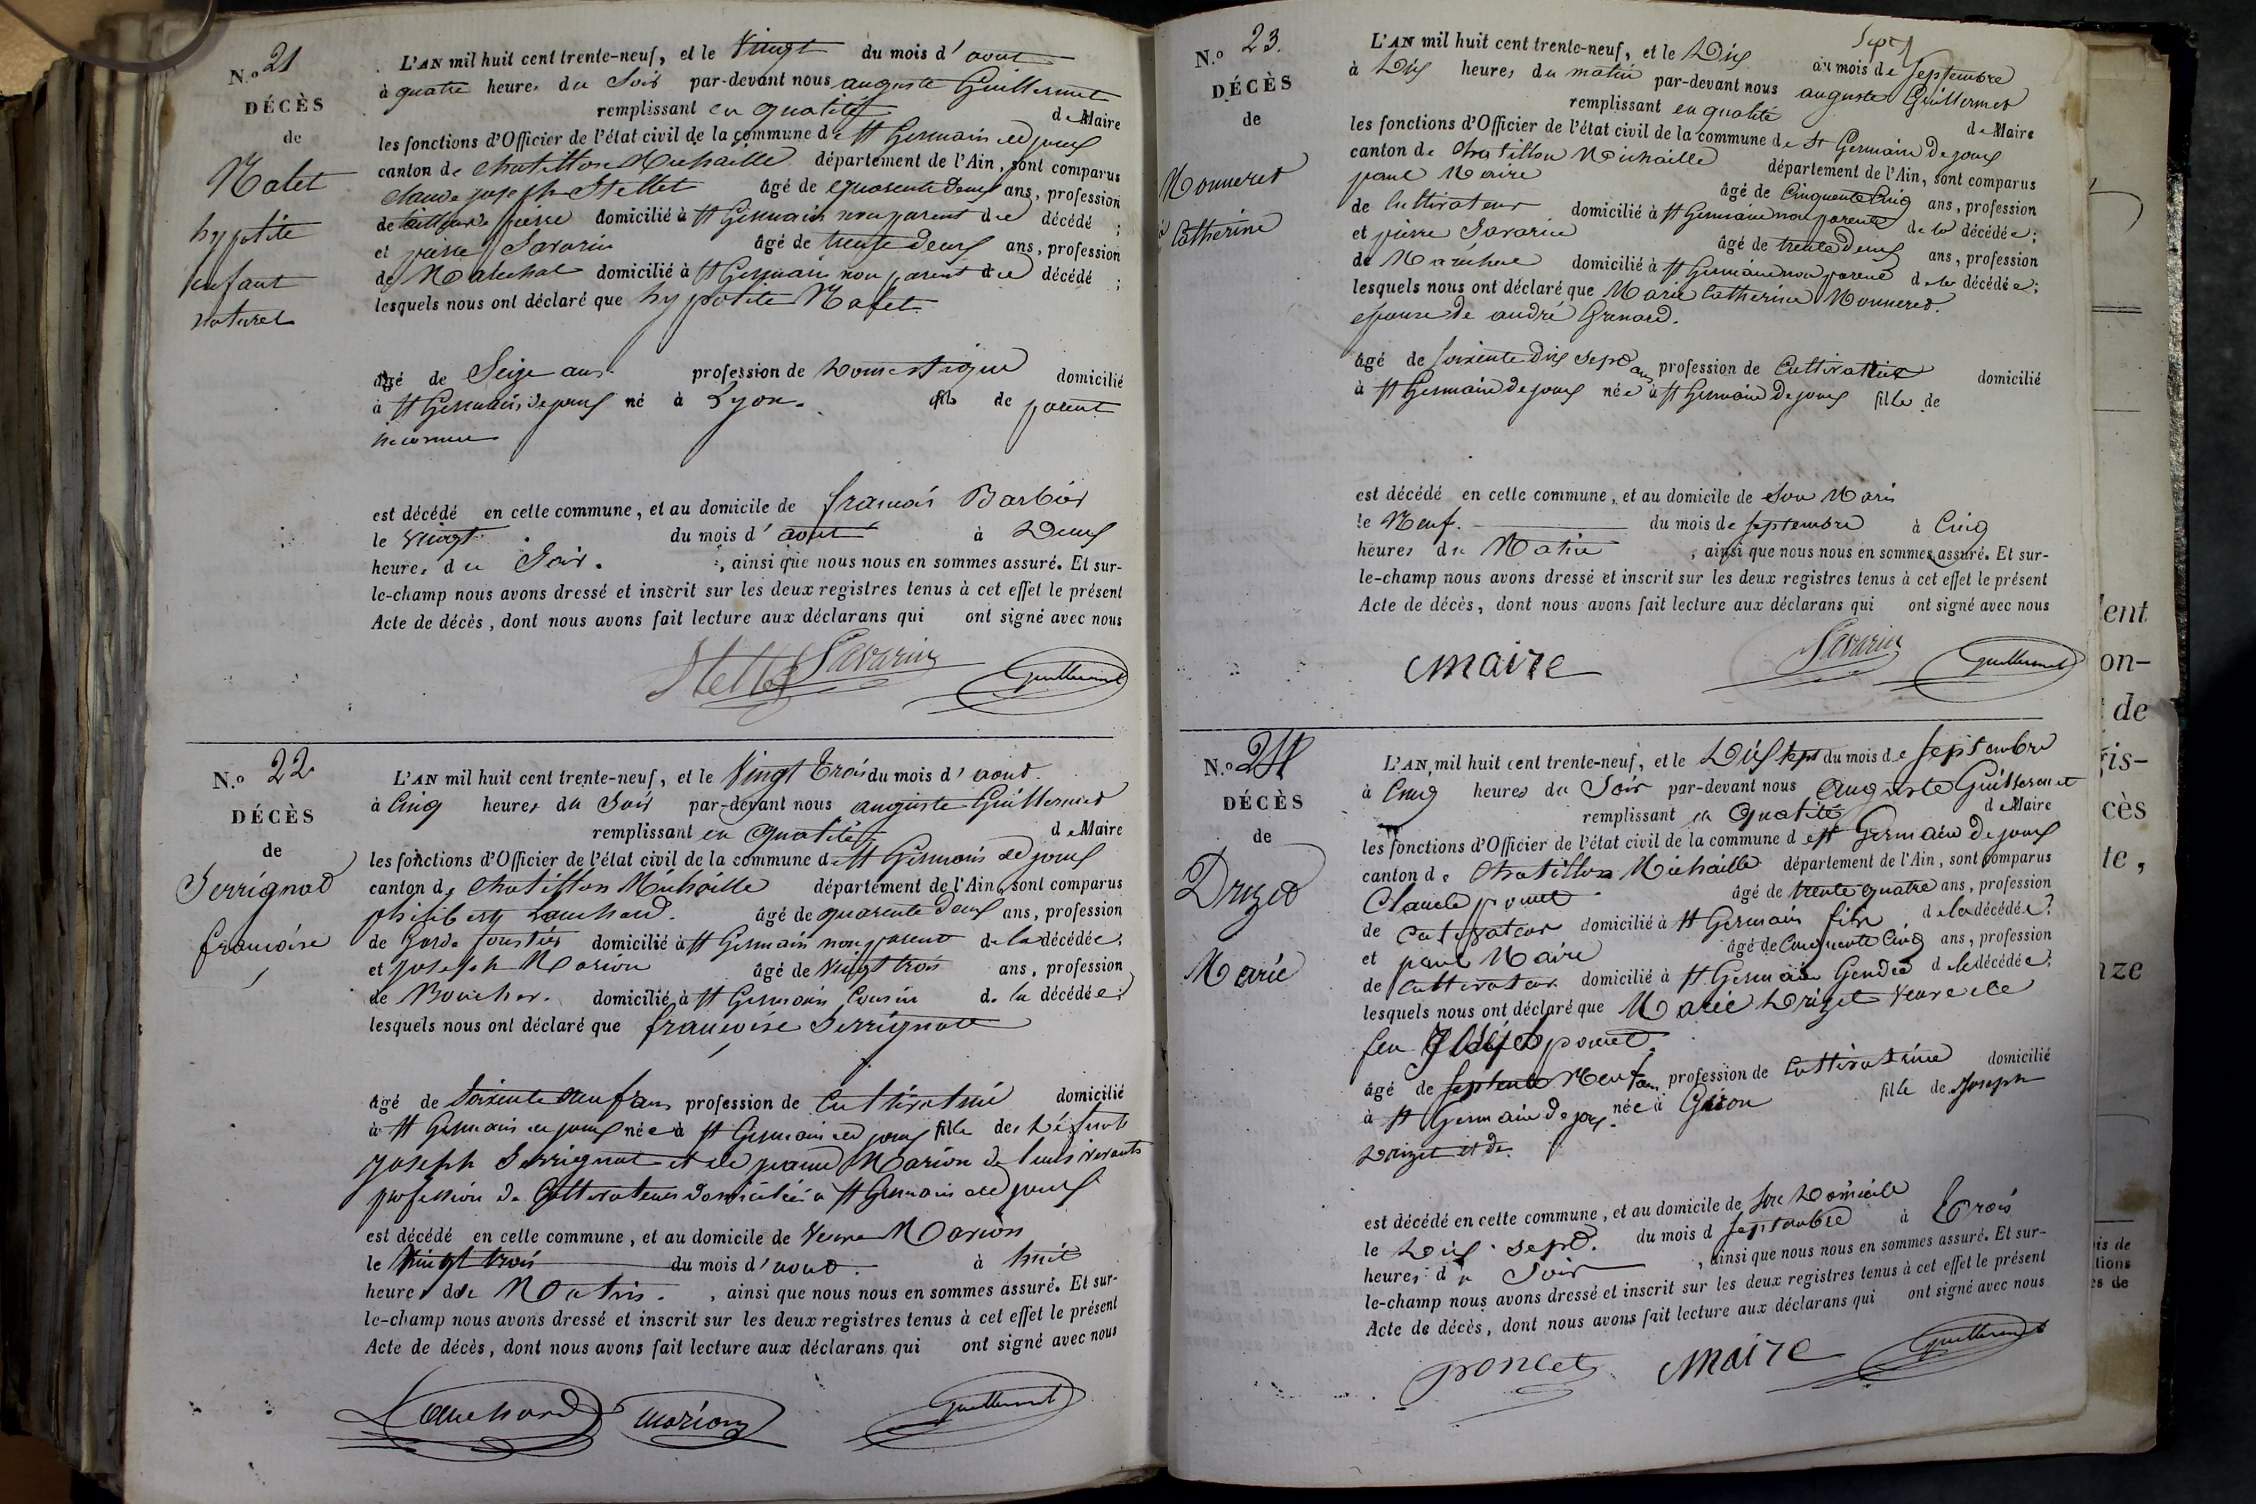 N.o 21
DÉCÈS
de
Malet
hypolite
enfant
naturel
L'AN mil huit cent trente-neuf, et le Vingt du mois d'aout
à quatre heures du Soir par-devant nous auguste Guillermet
remplissant en qualité de Maire
les fonctions d'Officier de l'état civil de la commune de St Germain de joux
canton de Chatillon Michaille département de l'Ain, sont comparus
Claude joseph Stellet âgé de quarente deux ans, profession
de domicilié à St Germain non parent du décédé ;
et pierre Savarin âgé de trente deux ans, profession
de Marechal domicilié à St Germain non parent du décédé ;
lesquels nous ont déclaré que hypolite Malet
âgé de Seize ans profession de Domestique domicilié
à St Germain de joux né à Lyon. fils de parent
inconnu
est décédé en cette commune, et au domicile de francois Barbier
le vingt du mois d'aout à Deux
heures du Soir. , ainsi que nous nous en sommes assuré. Et sur-
le-champ nous avons dressé et inscrit sur les deux registres tenus à cet effet le présent
Acte de décès, dont nous avons fait lecture aux déclarans qui ont signé avec nous
Stellet Savarin Guillermet
N.o 22
DÉCÈS
de
Serrignat
francoise
L'AN mil huit cent trente-neuf, et le Vingt trois du mois d'aout.
à Cinq heures du Soir par-devant nous auguste Guillermet
remplissant en qualité de Maire
les fonctions d'Officier de l'état civil de la commune de St Germain de joux
canton de Chatillon Michaille département de l'Ain, sont comparus
philibert Louchard. âgé de quarente deux ans, profession
de Garde forestier domicilié à St Germain non parent de la décédée ;
et joseph Marion âgé de vingt trois ans, profession
de Boucher. domicilié à St Germain Cousin de la décédée ;
lesquels nous ont déclaré que francoise Serrignat
âgé de Soixente neuf ans profession de Cultivatrice domicilié
à St Germain de joux née à St Germain de joux fille des Défunts
joseph Serrignat et de jeanne Marion de leurs vivants
profession de Cultivateurs domiciliés à St Germain de joux
est décédé en cette commune, et au domicile de Veuve Marion
le Vingt trois du mois d'aout. à huit
heures du Matin. , ainsi que nous nous en sommes assuré. Et sur-
le-champ nous avons dressé et inscrit sur les deux registres tenus à cet effet le présent
Acte de décès, dont nous avons fait lecture aux déclarans qui ont signé avec nous
Louchard Marion Guillermet
N.o 23.
DÉCÈS
de
Monneret
Catherine
Sept
L'AN mil huit cent trente-neuf, et le Dix du mois de Septembre
à Dix heures du matin par-devant nous auguste Guillermet
remplissant en qualité de Maire
les fonctions d'Officier de l'état civil de la commune de St Germain De joux
canton de Chatillon Michaille département de l'Ain, sont comparus
paul Maire âgé de Cinquente Cinq ans, profession
de Cultivateur domicilié à St Germain non parent de la décédée ;
et pierre Savarin âgé de trente Deux ans, profession
de Maréchal domicilié à St Germain non parent de la décédée ;
lesquels nous ont déclaré que Marie Catherine Monneret.
epouse de andré Grenard.
âgé de Soixente Dix Sept ans profession de Cultivatrice domicilié
à St Germain de joux née à St Germain De joux fille de
est décédé en cette commune, et au domicile de Son Mari
le Neuf. du mois de Septembre à Cinq
heures du Matin , ainsi que nous nous en sommes assuré. Et sur-
le-champ nous avons dressé et inscrit sur les deux registres tenus à cet effet le présent
Acte de décès, dont nous avons fait lecture aux déclarans qui ont signé avec nous
Maire Savarin Guillermet
N.o 24
DÉCÈS
de
Druzet
Marie
L'AN mil huit cent trente-neuf, et le Dix Sept du mois de Septembre
à Cinq heures du Soir par-devant nous Auguste Guillermet
remplissant en Qualité de Maire
les fonctions d'Officier de l'état civil de la commune de St Germain De joux
canton de Chatillon Michaille département de l'Ain, sont comparus
Claude poncet âgé de trente quatre ans, profession
de Cultivateur domicilié à St Germain fils de la décédée ;
et paul Maire âgé de Cinquente Cinq ans, profession
de Cultivateur domicilié à St Germain Gendre de la décédée ;
lesquels nous ont déclaré que Marie Drizet Veuve de
feu poncet.
âgé de Septente Neuf ans profession de Cultivatrice domicilié
à St Germain de joux. née à Giron fille de Joseph
Drizet et de
est décédé en cette commune, et au domicile de Son Domicile
le Dix Sept. du mois d Septembre à Trois
heures du Soir , ainsi que nous nous en sommes assuré. Et sur-
le-champ nous avons dressé et inscrit sur les deux registres tenus à cet effet le présent
Acte de décès, dont nous avons fait lecture aux déclarans qui ont signé avec nous
poncet Maire Guillermet